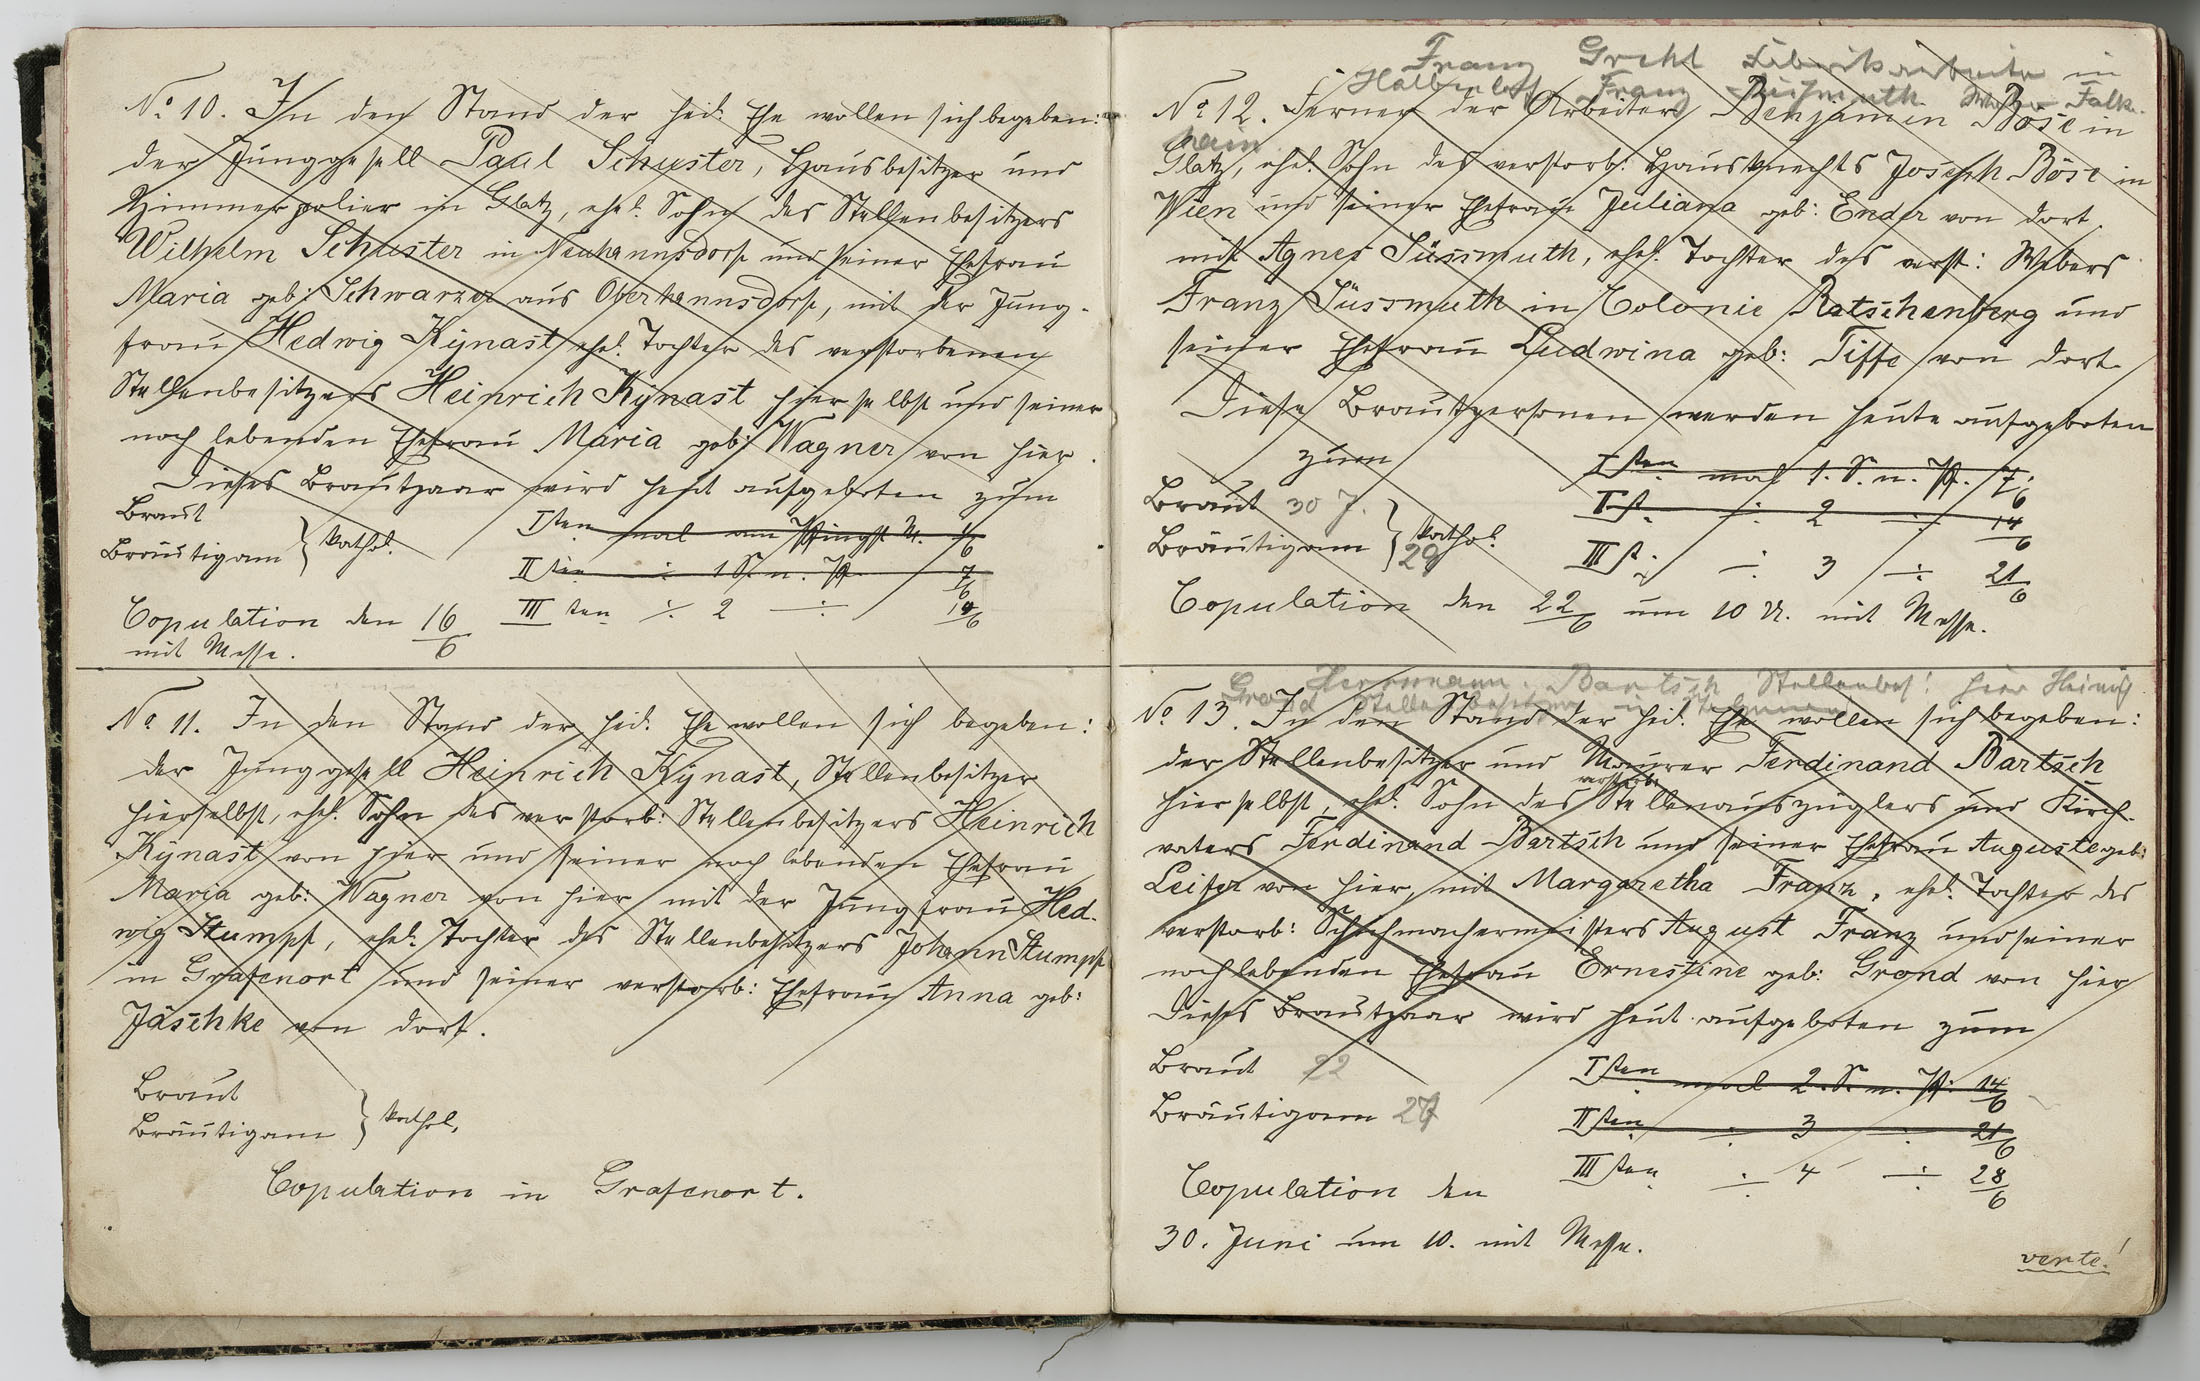 No 10. In den Stand der heil. Ehe wollen sich begeben:
der Junggesell Paul Schuster, Hausbesitzer und
Zimmerpolier in Glatz, ehel. Sohn des Stellenbesitzers
Wilhelm Schuster in Neuhannsdorf und seiner Ehefrau
Maria geb: Schwarzer aus Oberhannsdorf, mit der Jung-
frau Hedwig Kynast ehel. Tochter des verstorbenen
Stellenbesitzers Heinrich Kynast hierselbst und seiner
noch lebenden Ehefrau Maria geb: Wagner von hier.
Dieses Brautpaar wird heut aufgeboten zum
Braut
Bräutigam } kathol.
Isten mal am Pfingst M. 1/6
IIten ÷ 1 S. n. Pf. 7/6
IIIten ÷ 2 ÷ 14/6
Copulation den 16/6
mit Messe.
No 11. In den Stand der heil. Ehe wollen sich begeben:
der Junggesell Heinrich Kynast, Stellenbesitzer
hierselbst, ehel. Sohn des verstorb: Stellenbesitzers Heinrich
Kynast von hier und seiner noch lebenden Ehefrau
Maria geb: Wagner von hier mit der Jungfrau Hed-
wig Stumpf, ehel. Tochter des Stellenbesitzers Johann Stumpf
in Grafenort und seiner verstorb: Ehefrau Anna geb:
Jaschke von dort.
Braut
Bräutigam } kathol.
Copulation in Grafenort.
Franz Fabrikarbeiter in
Halbendorf Franz Süßmuth Falken-
hain
No 12. Ferner der Arbeiter Benjamin Böse in
Glatz, ehel. Sohn des verstorb: Hausknechts Joseph Böse in
Wien und seiner Ehefrau Juliana geb: Ender von dort.
mit Agnes Süssmuth, ehel. Tochter des verst: Webers
Franz Süssmuth in Colonie Ratschenberg und
seiner Ehefrau Ludwina geb: Tiffe von dort.
Diese Brautpersonen werden heute aufgeboten
zum
Isten mal 1. S. n. Pf. 7/6
IIt. ÷ 2 ÷ 14/6
IIIt. ÷ 3 ÷ 21/6
Braut 30 J.
Bräutigam 29 } kathol.
Copulation den 22/6 um 10 U. mit Messe.
Herrmann Bartsch Stellenbes! hier Heinrich
Grond Stellenbesitzer in
No 13. In den Stand der heil. Ehe wollen sich begeben:
der Stellenbesitzer und Maurer Ferdinand Bartsch
hierselbst, ehel. Sohn des verstorb. Stellenauszüglers und Kirch-
vaters Ferdinand Bartsch und seiner Ehefrau Auguste geb:
Leifer von hier, mit Margaretha Franz, ehel. Tochter des
verstorb: Schuhmachermeisters August Franz und seiner
noch lebenden Ehefrau Ernestine geb: Grond von hier
Dieses Brautpaar wird heut aufgeboten zum
Braut 22
Bräutigam 27
Isten mal 2. S. n. Pf: 14/6
IIten ÷ 3 ÷ 21/6
IIIten ÷ 4 ÷ 28/6
Copulation den
30. Juni um 10. mit Messe.
verte!